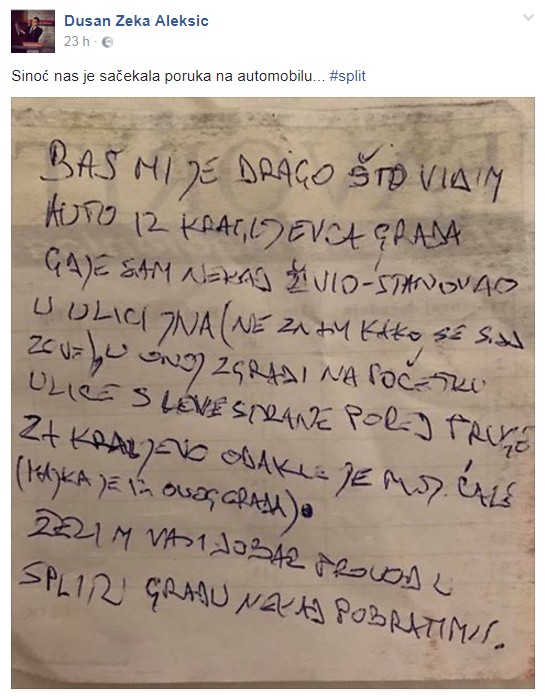 Dusan Zeka Aleksic
23 h ·
Sinoć nas je sačekala poruka na automobilu... #split
BAŠ MI JE DRAGO ŠTO VIDIM
AUTO IZ KRAGUJEVCA GRADA
GDJE SAM NEKAD ŽIVIO-STANOVAO
U ULICI JNA (NE ZNAM KAKO SE SAD
ZOVE), U ONOJ ZGRADI NA POČETKU
ULICE S LEVE STRANE PORED PRUGE
ZA KRALJEVO ODAKLE JE MOJ ĆALE
(MAJKA JE IZ OVOG GRADA).
ŽELIM VAM DOBAR PROVOD U
SPLITU GRADU NEKAD POBRATIMU.